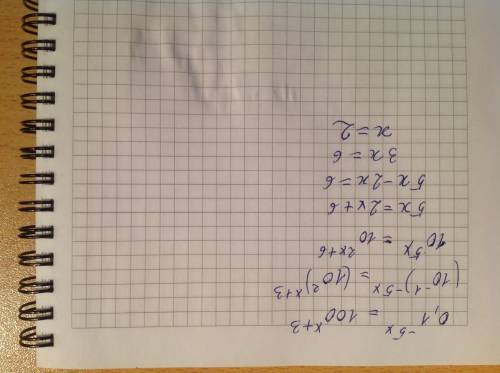 0,1^{-5x} = 100^{x+3}
(10^{-1})^{-5x} = (10^{2})^{x+3}
10^{5x} = 10^{2x+6}
5x = 2x+6
5x-2x = 6
3x = 6
x = 2